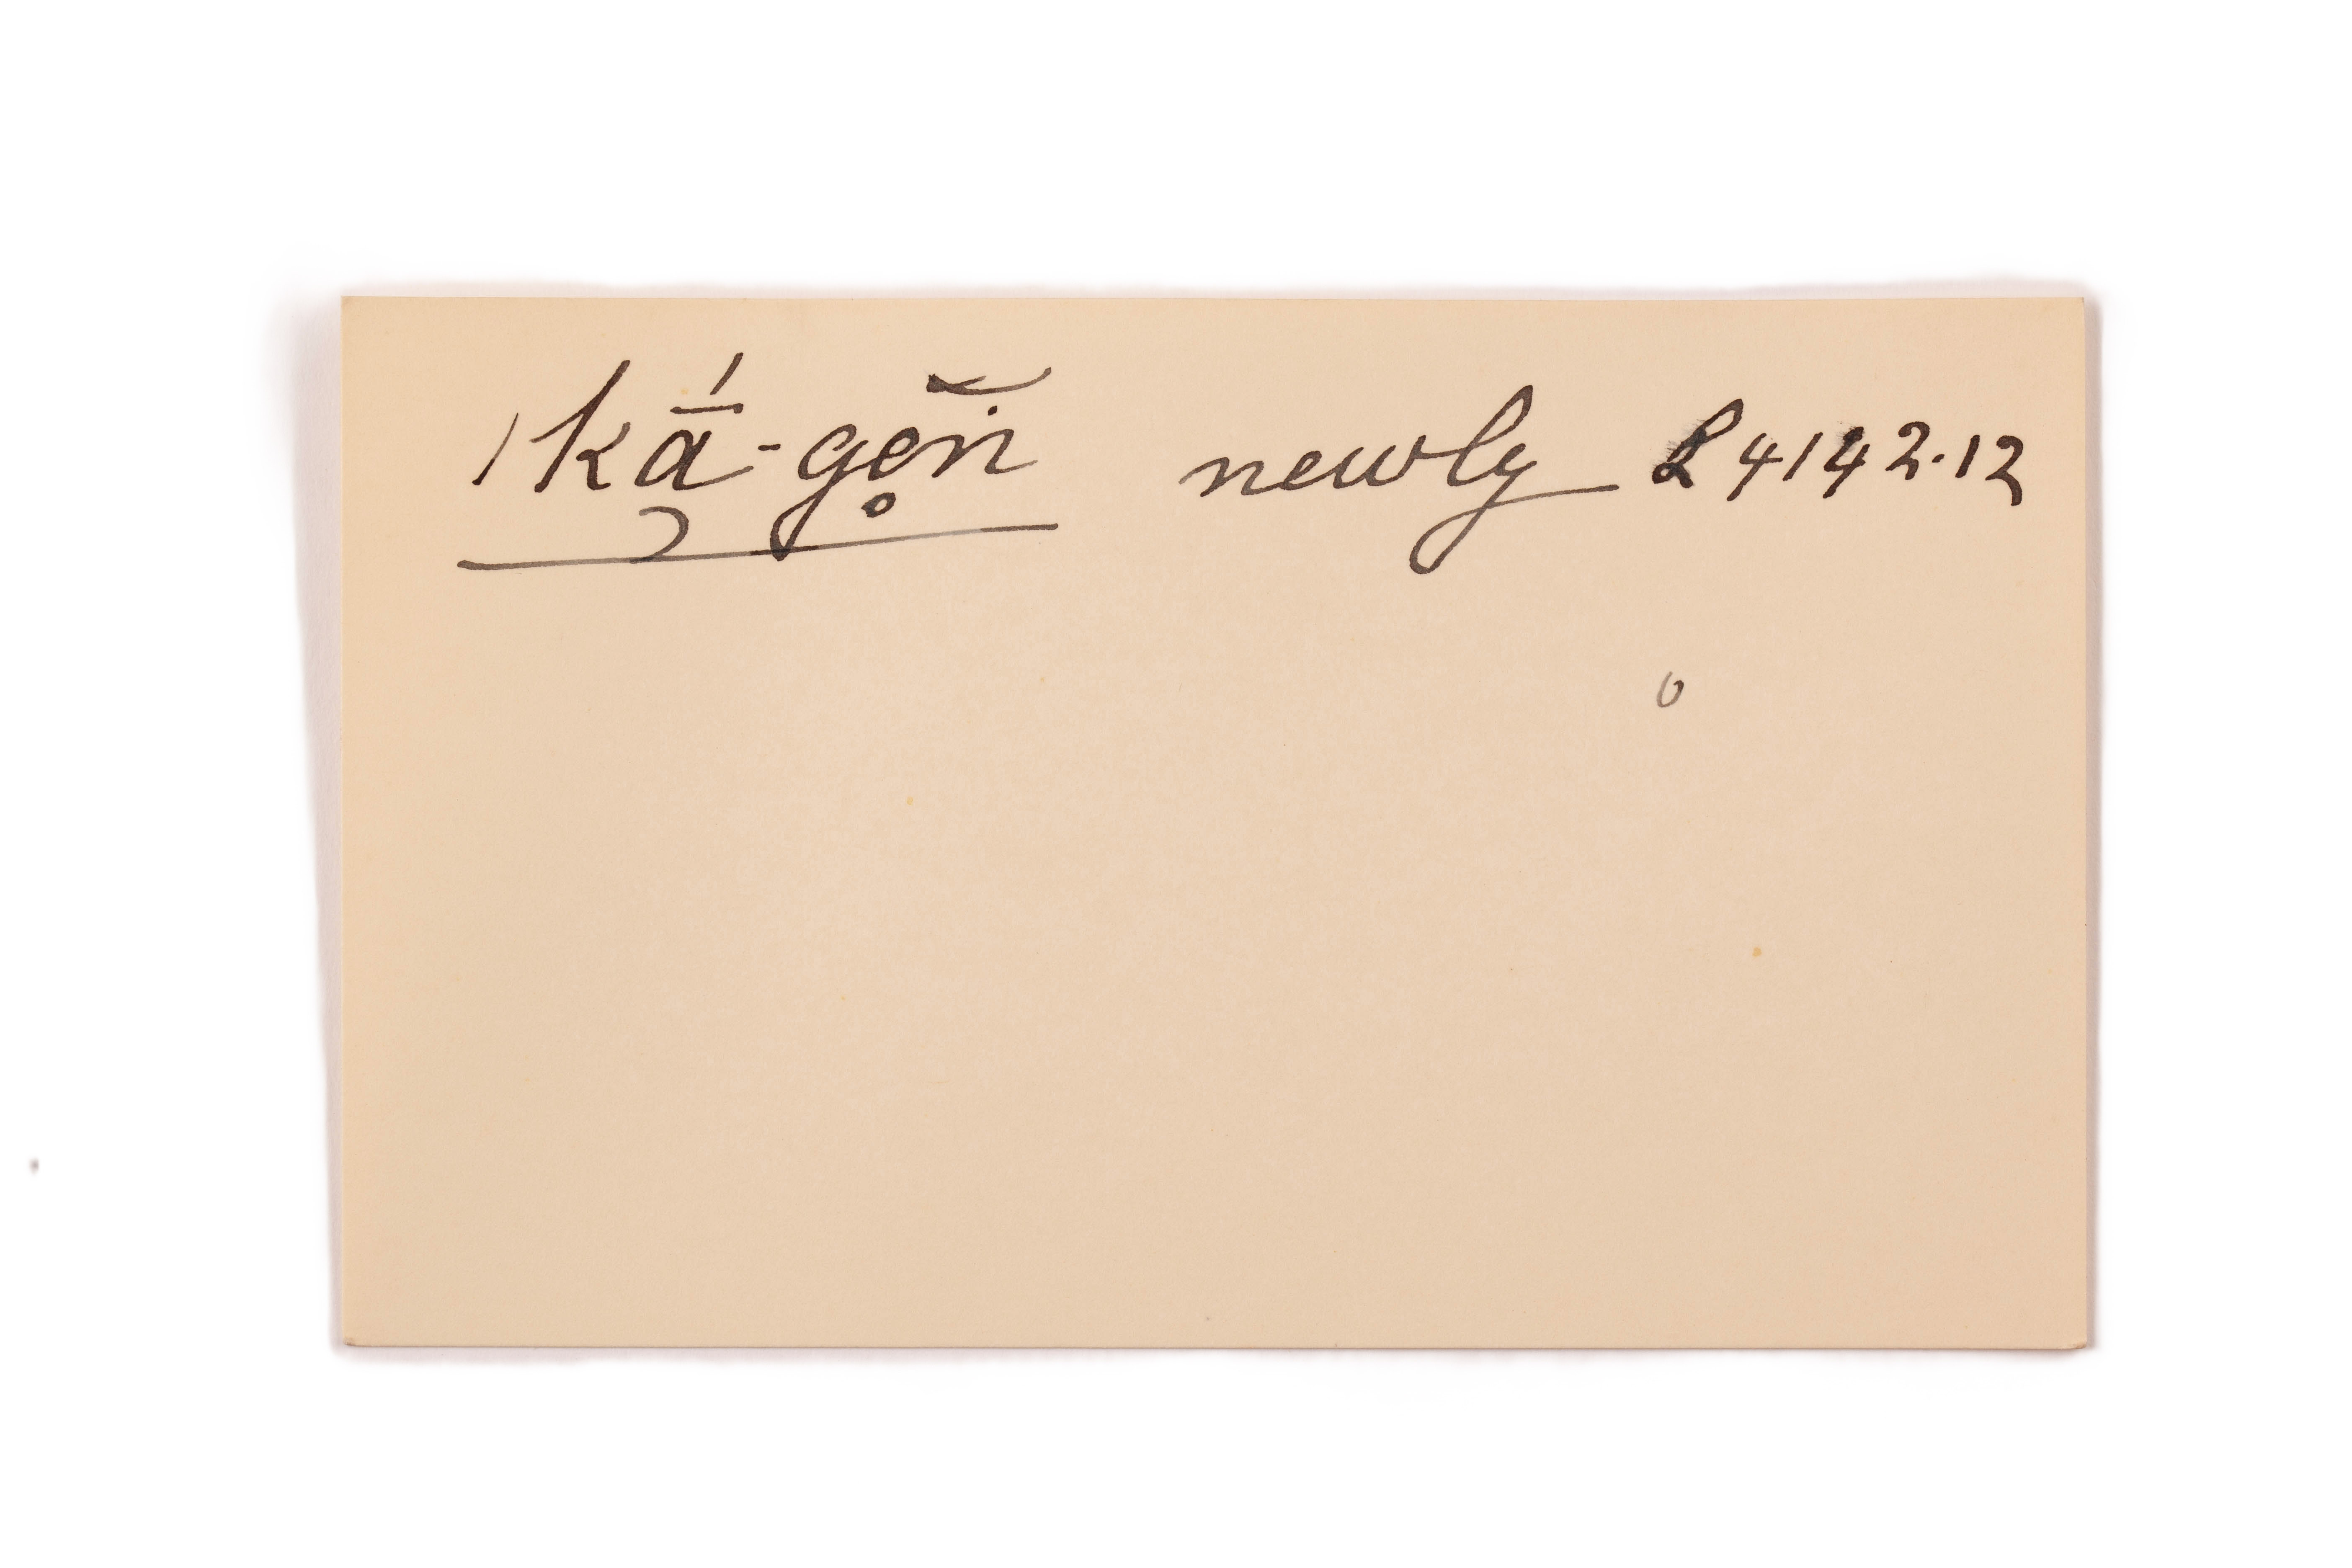 ꞌką̄́-gẹn̆̇ newly L4142.12
o